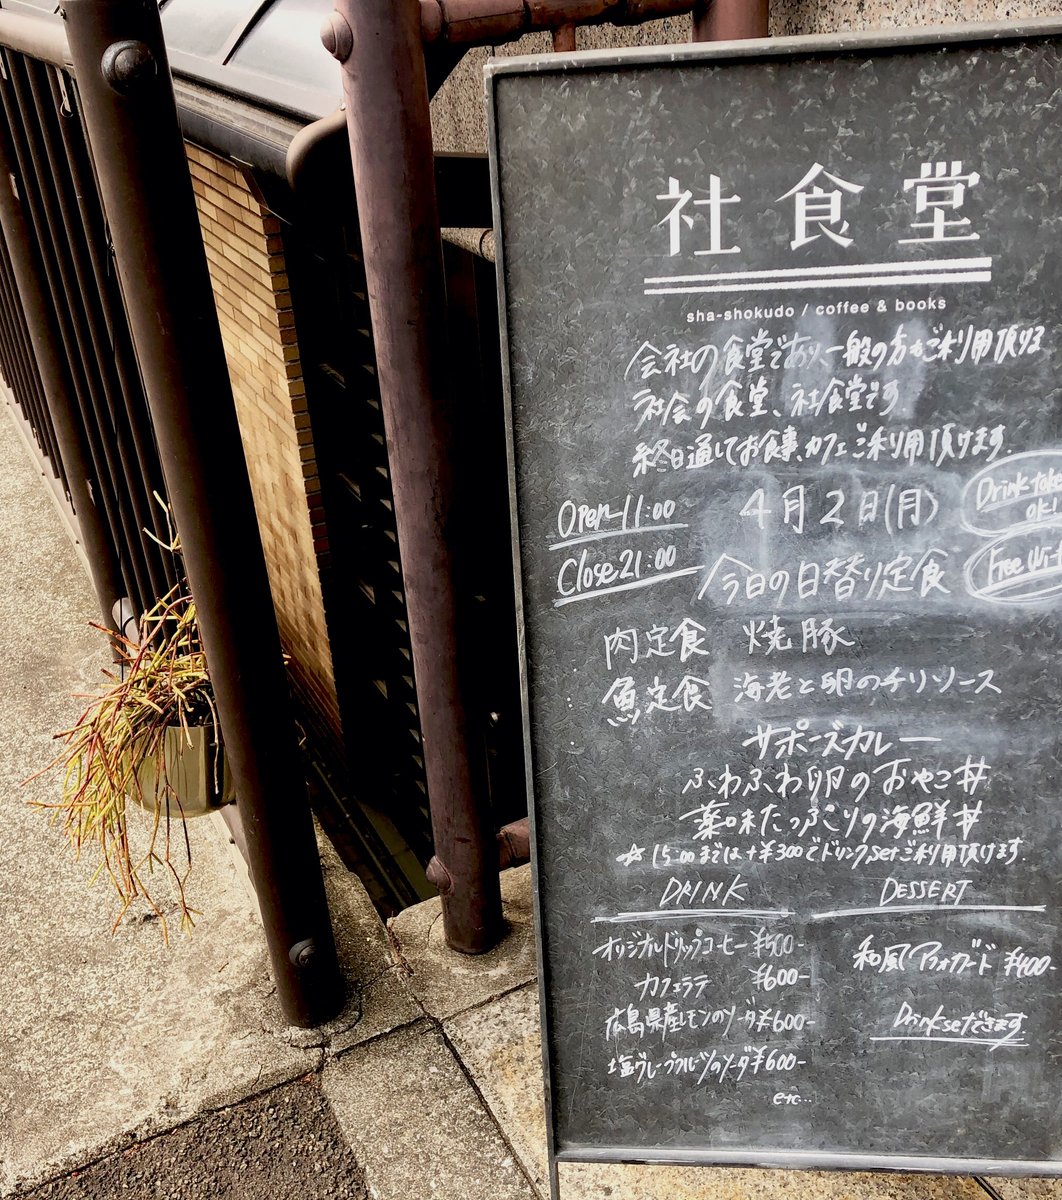 社食堂
sha-shokudo / coffee & books
会社の食堂であり、一般の方もご利用頂ける
社会の食堂、社食堂です。
終日通してお食事、カフェご利用頂けます。
Open 11:00
Close 21:00
4月2日(月)
Drink take
ok!
Free Wi-F
今日の日替り定食
肉定食 焼豚
魚定食 海老と卵のチリソース
サポーズカレー
ふわふわ卵のおやこ丼
薬味たっぷりの海鮮丼
☆15:00までは+¥300でドリンクsetご利用頂けます.
DRINK
オリジナルドリップコーヒー ¥500-
カフェラテ ¥600-
広島県産レモンのソーダ ¥600-
塩グレープフルーツのソーダ ¥600-
etc...
DESSERT
和風アフォガード ¥400-
Drink setできます